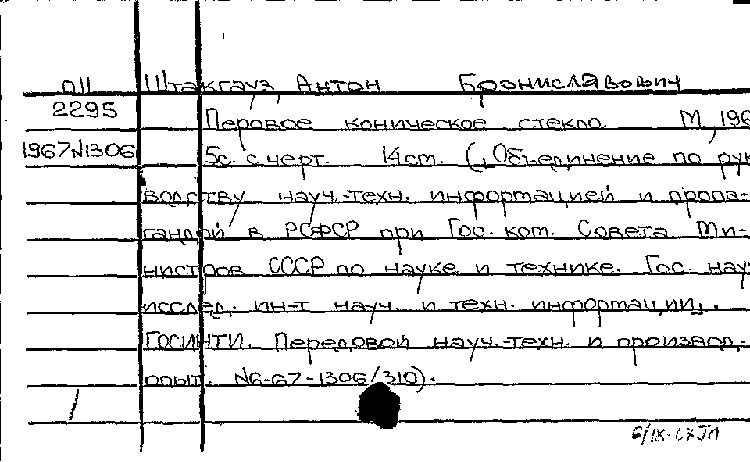 П11 Штакгауз, Антон Брониславович
2295
Перовое коническое стекло. М, 196
1967N1306 5с. с черт. 14ст. („Объединение по рук
водству науч.-техн. информацией и пропа-
гандой в РСФСР при Гос. ком. Совета Ми-
нистров СССР по науке и технике. Гос. науч
исслед. ин-т науч. и техн. информации„.
ГОСИНТИ. Передовой науч.-техн. и производ.
опыт. N6-67-1306/310).